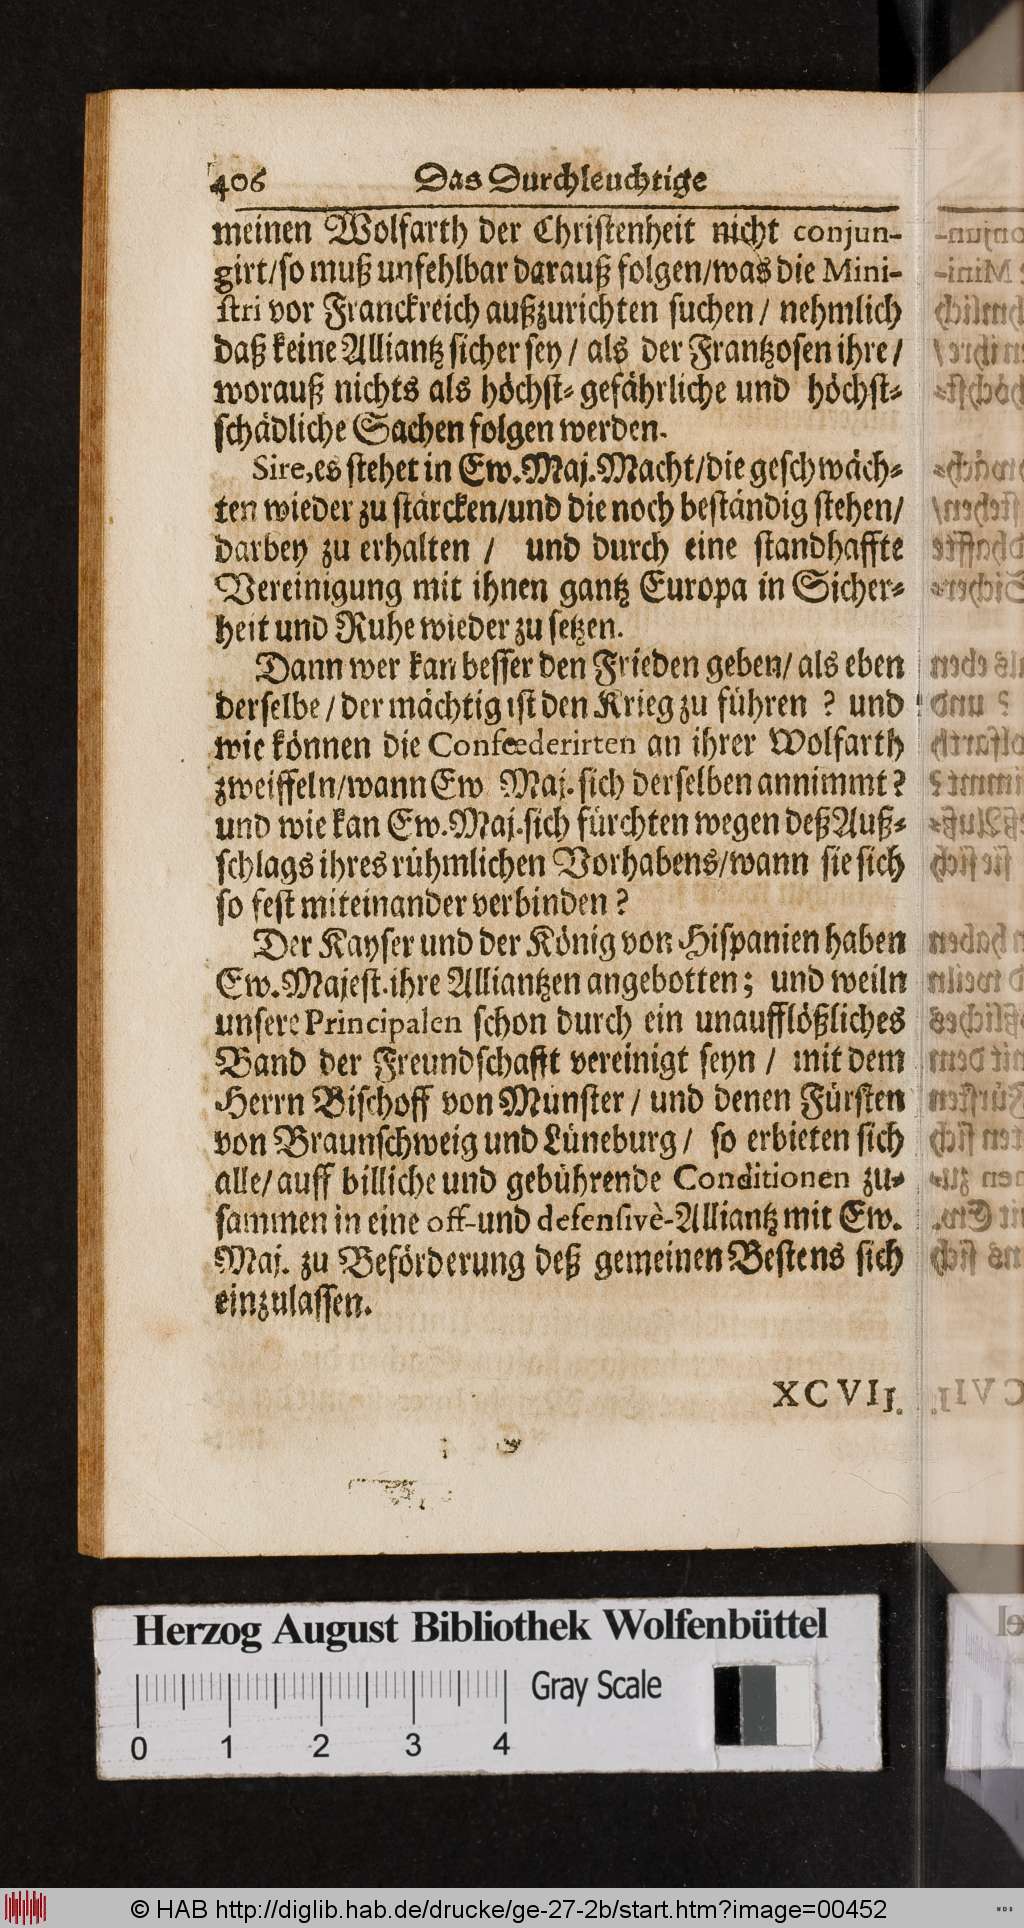 406 Das Durchleuchtige
meinen Wolfarth der Christenheit nicht conjun-
girt/so muß unfehlbar darauß folgen/was die Mini-
stri vor Franckreich außzurichten suchen / nehmlich
daß keine Alliantz sicher sey / als der Frantzosen ihre /
worauß nichts als höchst- gefährliche und höchst-
schädliche Sachen folgen werden.
Sire, es stehet in Ew. Maj. Macht/die geschwäch-
ten wieder zu stärcken/und die noch beständig stehen/
darbey zu erhalten / und durch eine standhaffte
Vereinigung mit ihnen gantz Europa in Sicher-
heit und Ruhe wieder zu setzen.
Dann wer kan besser den Frieden geben/ als eben
derselbe / der mächtig ist den Krieg zu führen ? und
wie können die Confœderirten an ihrer Wolfarth
zweiffeln/wann Ew Maj. sich derselben annimmt ?
und wie kan Ew. Maj. sich fürchten wegen deß Auß-
schlags ihres rühmlichen Vorhabens/wann sie sich
so fest miteinander verbinden ?
Der Kayser und der König von Hispanien haben
Ew. Majest. ihre Alliantzen angebotten; und weiln
unsere Principalen schon durch ein unaufflößliches
Band der Freundschafft vereinigt seyn / mit dem
Herrn Bischoff von Münster / und denen Fürsten
von Braunschweig und Lüneburg / so erbieten sich
alle/ auff billiche und gebührende Conditionen zu-
sammen in eine off- und defensivè-Alliantz mit Ew.
Maj. zu Beförderung deß gemeinen Bestens sich
einzulassen.
XCVIJ.
Herzog August Bibliothek Wolfenbüttel
Gray Scale
0 1 2 3 4
© HAB http://diglib.hab.de/drucke/ge-27-2b/start.htm?image=00452